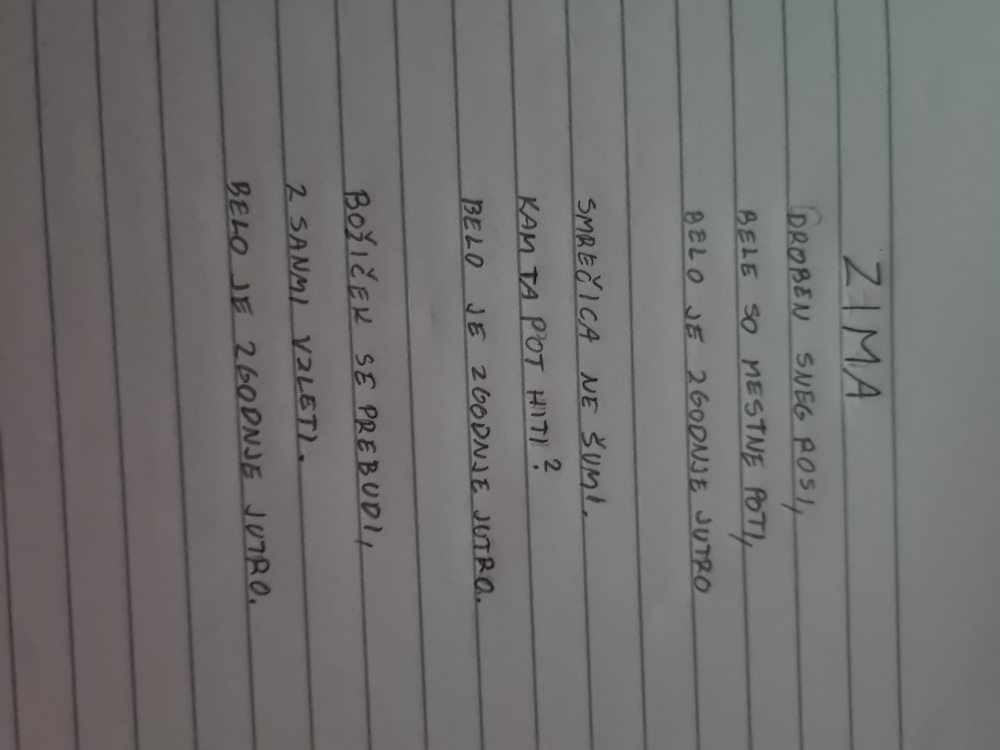 ZIMA
DROBEN SNEG ROSI,
BELE SO MESTNE POTI,
BELO JE ZGODNJE JUTRO
SMREČICA NE ŠUMI.
KAM TA POT HITI?
BELO JE ZGODNJE JUTRO.
BOŽIČEK SE PREBUDI,
Z SANMI VZLETI.
BELO JE ZGODNJE JUTRO.